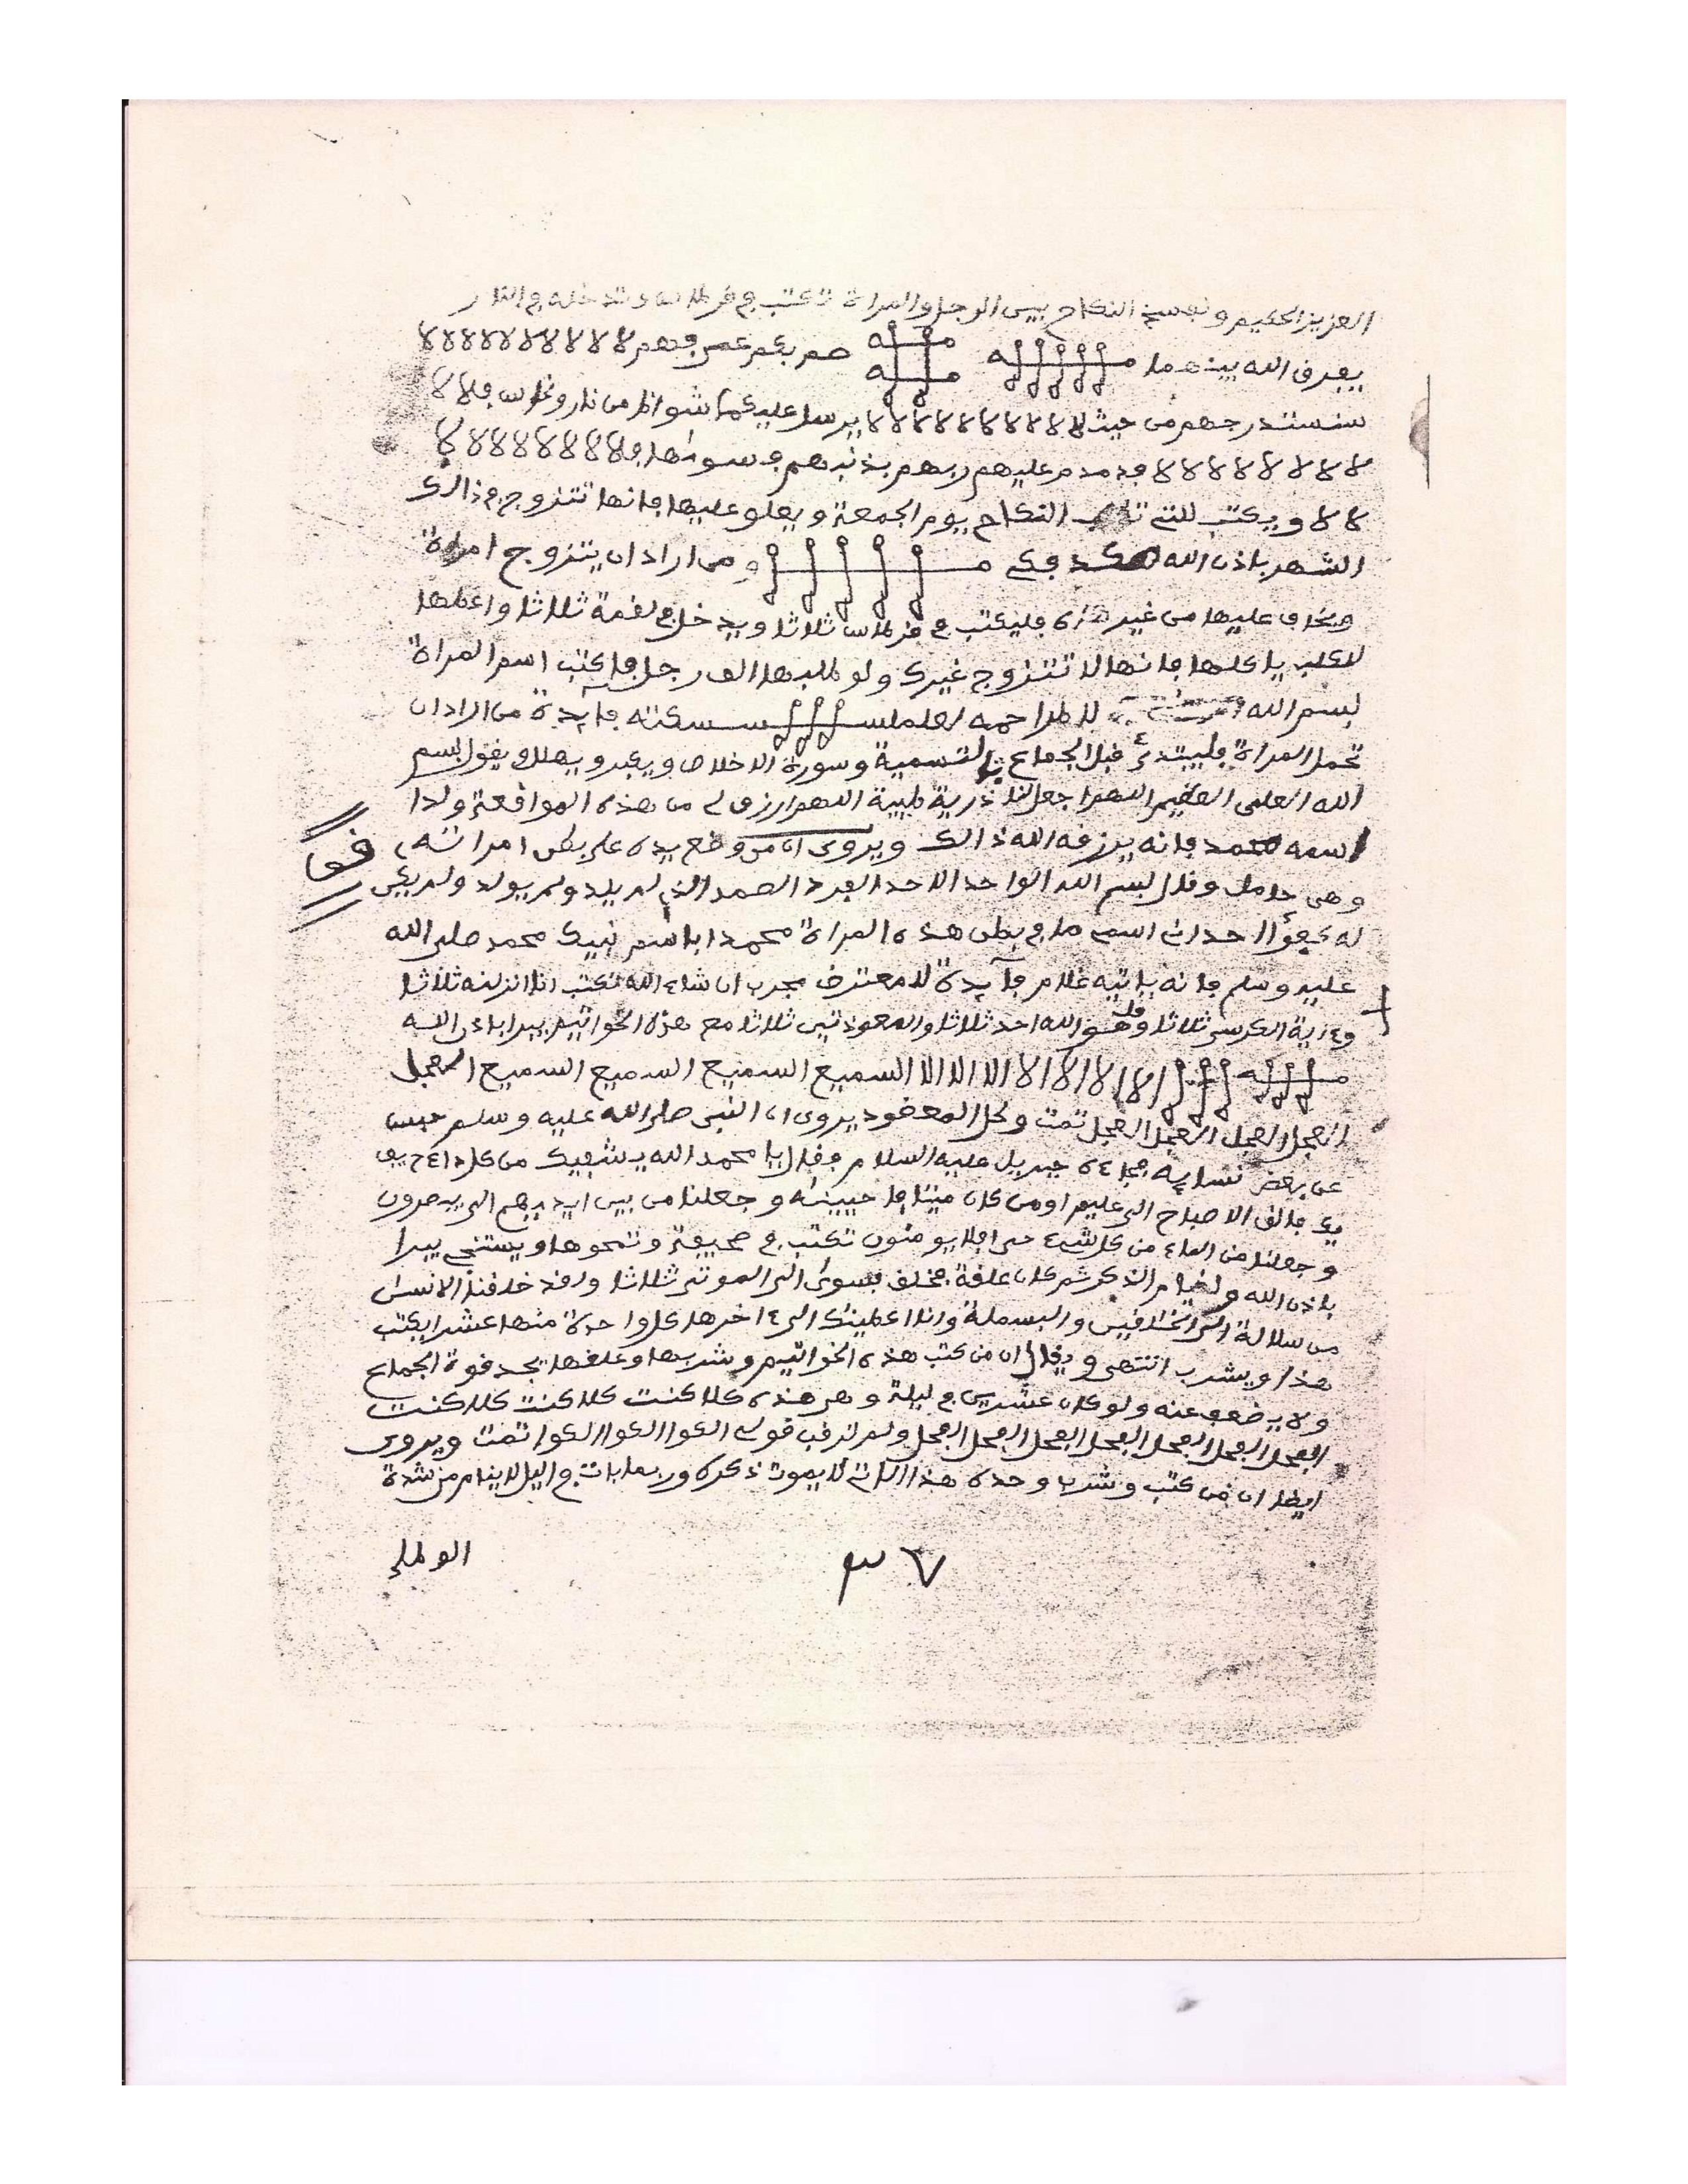 العزيز الحكيم ولفسخ النكاح بين الرجل والمراة تكتب في قرطاس وتدخله في النار
يفرق الله بينهما صم بكم عمي فهم لا لا لا لا لا لا لا لا لا لا
سنستدرجهم من حيث لا لا لا لا لا لا لا لا لا لا يرسل عليكما شواظ من نار ونحاس فلا لا
لا لا لا لا لا لا لا لا فدمدم عليهم ربهم بذنبهم فسواها فلا لا لا لا لا لا لا لا
لا لا ويكتب للتي النكاح يوم الجمعة ويعلق عليها فانها تتزوج في ذالك
الشهر باذن الله ومن اراد ان يتزوج امراة
ويخاف عليها من غيره فليكتب في قرطاس ثلاثا ويدخل في لقمة ثلاثا واعطها
لكلب ياكلها فانها لا تتزوج غيرك ولو طلبها الف رجل فاكتب اسم المراة
بسم الله فايدة من اراد ان
تحمل المراة فليبتدئ قبل الجماع بالتسمية وسورة الاخلاص ويكبر ويهلل ويقول بسم
الله العلي العظيم اللهم اجعل لنا ذرية طيبة اللهم ارزق لي من هذه المواقعة ولدا
اسمه محمد فانه يرزقه الله ذالك ويروى ان من وضع يده على بطن امراته
قف
وهي حامل وقال بسم الله الواحد الاحد الفرد الصمد الذي لم يلد ولم يولد ولم يكن
له كفؤا احد ان اسمي ما في بطن هذه المراة محمدا باسم نبيك محمد صلى الله
عليه وسلم فانه ياتيه غلام فآيدة لا معترض مجرب ان شاء الله تكتب انا انزلنه ثلاثا
وءاية الكرسي ثلاثا وقل هو الله احد ثلاثا والمعوذتين ثلاثا مع هذه الخواتيم يبرا باذن الله
السميع السميع السميع السميع العجل
العجل العجل العجل العجل تمت ولحل المعقود يروى ان النبي صلى الله عليه وسلم حبس
عن بعض نسايه فجاءه جبريل عليه السلام فقال يا محمد الله يشفيك من كل داء
فالق الاصباح الى عليم اومن كان ميتا فاحيينه وجعلنا من بين ايديهم الى يبصرون
وجعلنا من الماء من كل شيء حي افلا يومنون تكتب في صحيفة وتمحوها ويستنجي يبرا
باذن الله ولقيام الذكر ثم كان علقة فخلق فسوى الى الموتى ثلاثا ولقد خلقنا الانسن
من سلالة الى الخالقين والبسملة وانا اعطينك الى ءاخرها كل واحدة منها عشرا يكتب
هذا ويشرب انتهى ويقال ان من كتب هذه الخواتيم وشربها وعلقها يجد قوة الجماع
ولا يضعف عنه ولو كان عشرين في ليلة وهي هذه كلا كنت كلا كنت كلا كنت
العجل العجل العجل العجل العجل العجل العجل ولم ترقب قولي تمت ويروى
ايضا ان من كتب وشرب وحده هذا لا يموت ذكره وربما بات في اليل لا ينام من شدة
٣٧
الوطء